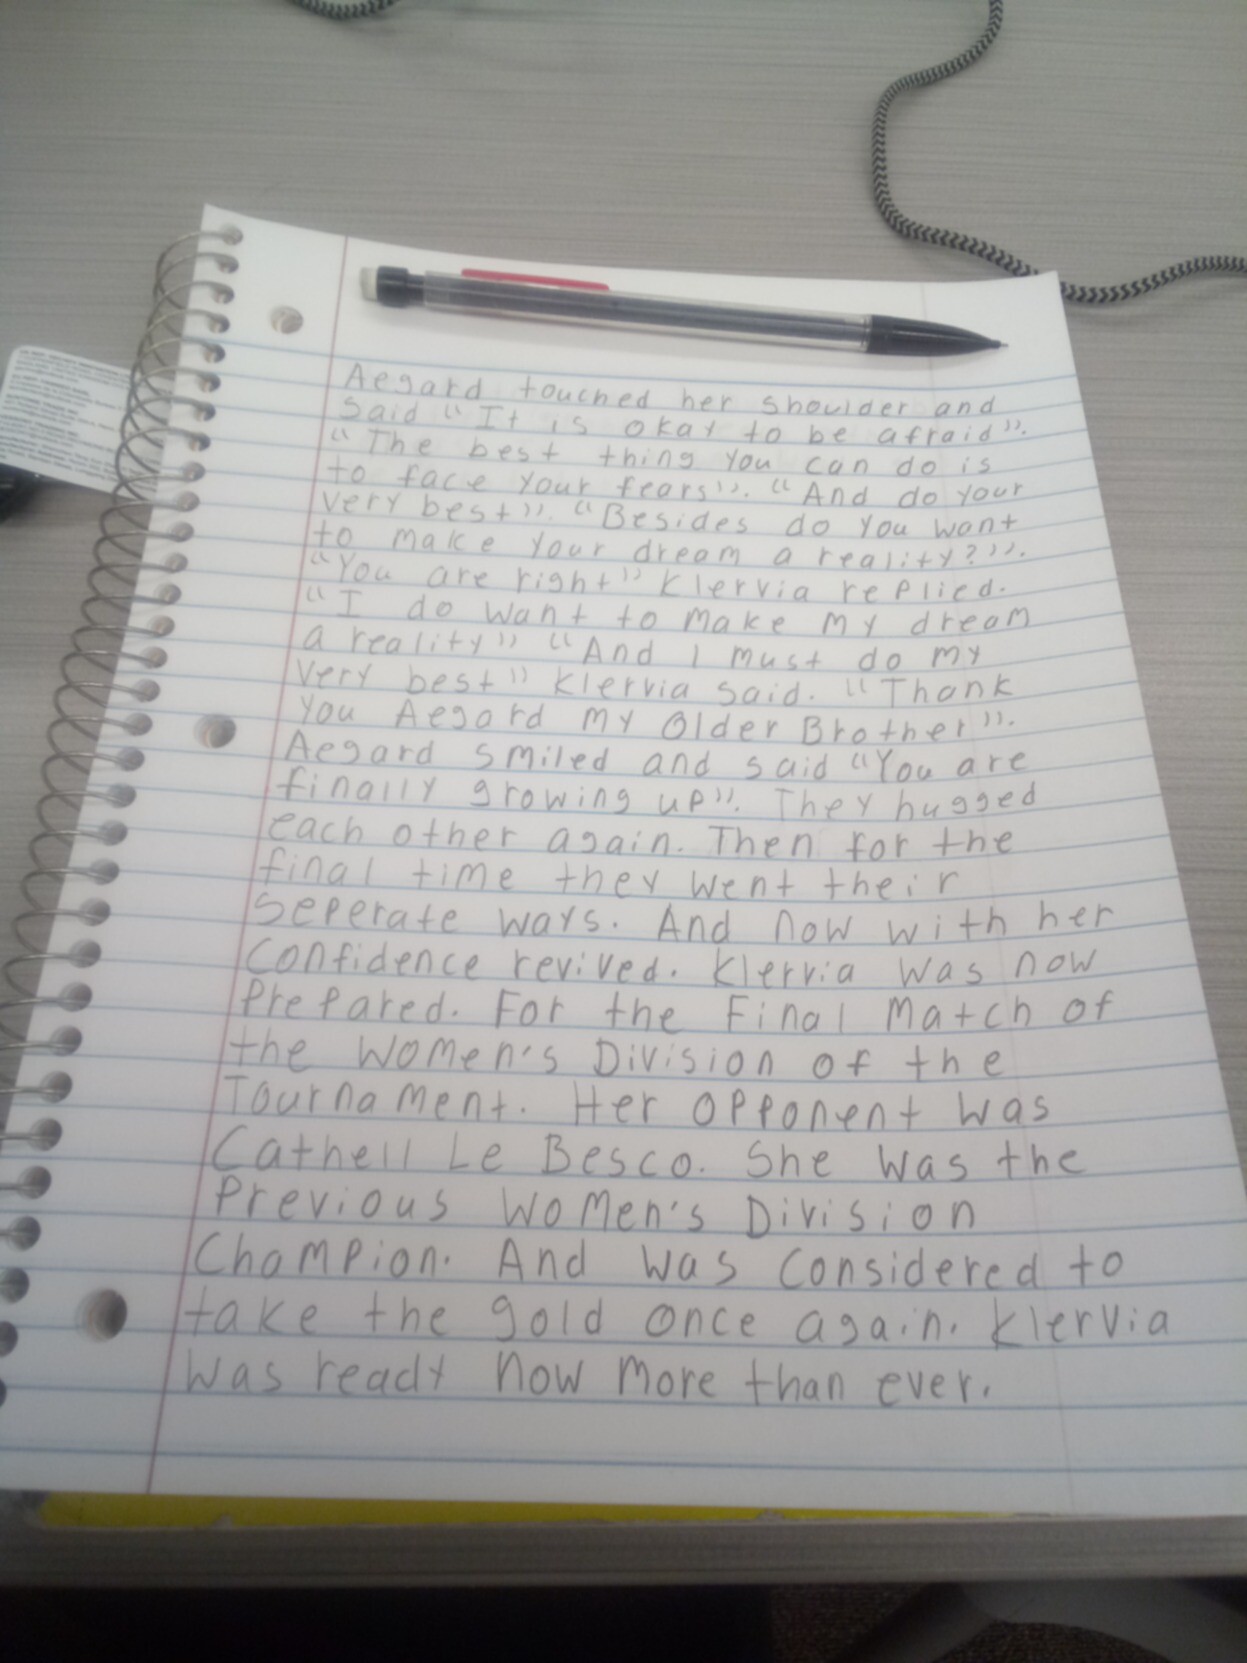 Aegard touched her shoulder and
said "It is okay to be afraid".
"The best thing you can do is
to face your fears". "And do your
very best". "Besides do you want
to make your dream a reality?".
"You are right" Klervia replied.
"I do want to make my dream
a reality" "And I must do my
very best" Klervia said. "Thank
you Aegard my Older Brother".
Aegard smiled and said "You are
finally growing up". They hugged
each other again. Then for the
final time they went their
Seperate ways. And now with her
Confidence revived. Klervia was now
Prepared. For the Final Match of
the Women's Division of the
Tournament. Her opponent was
Cathell Le Besco. She was the
Previous Women's Division
Champion. And was considered to
take the gold once again. Klervia
was ready now more than ever.